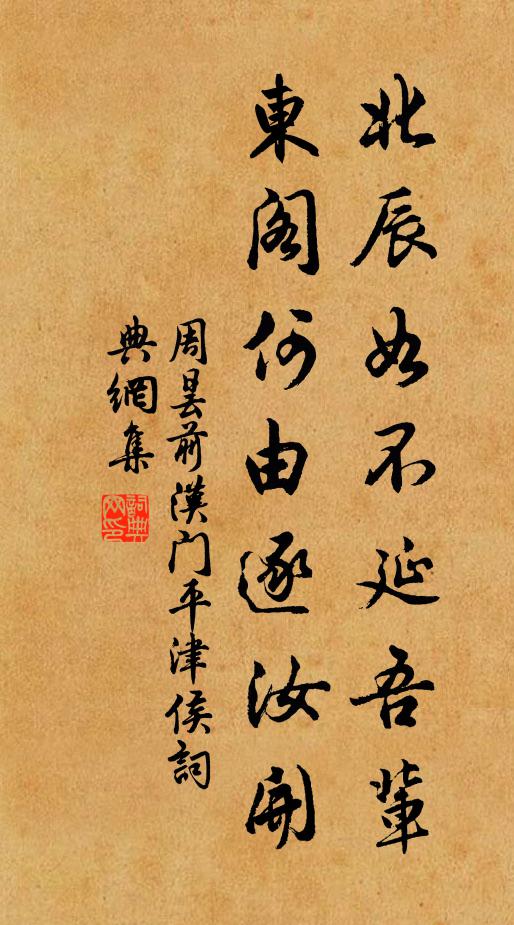 北辰如不延吾輩
東閣何由逐汝開
周曇前漢門平津侯詞
典網集
詞典網印